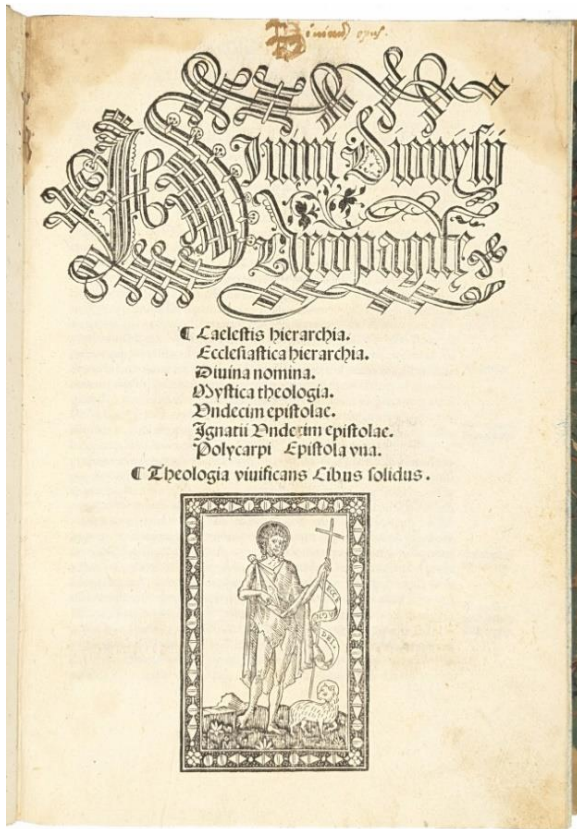 Diuini opus.
Diuini Dionysij
Areopagitę
¶ Caelestis hierarchia.
Ecclesiastica hierarchia.
Diuina nomina.
Mystica theologia.
Vndecim epistolae.
Ignatii Vndecim epistolae.
Polycarpi Epistola vna.
¶ Theologia viuificans Cibus solidus.
ECCE
DEI